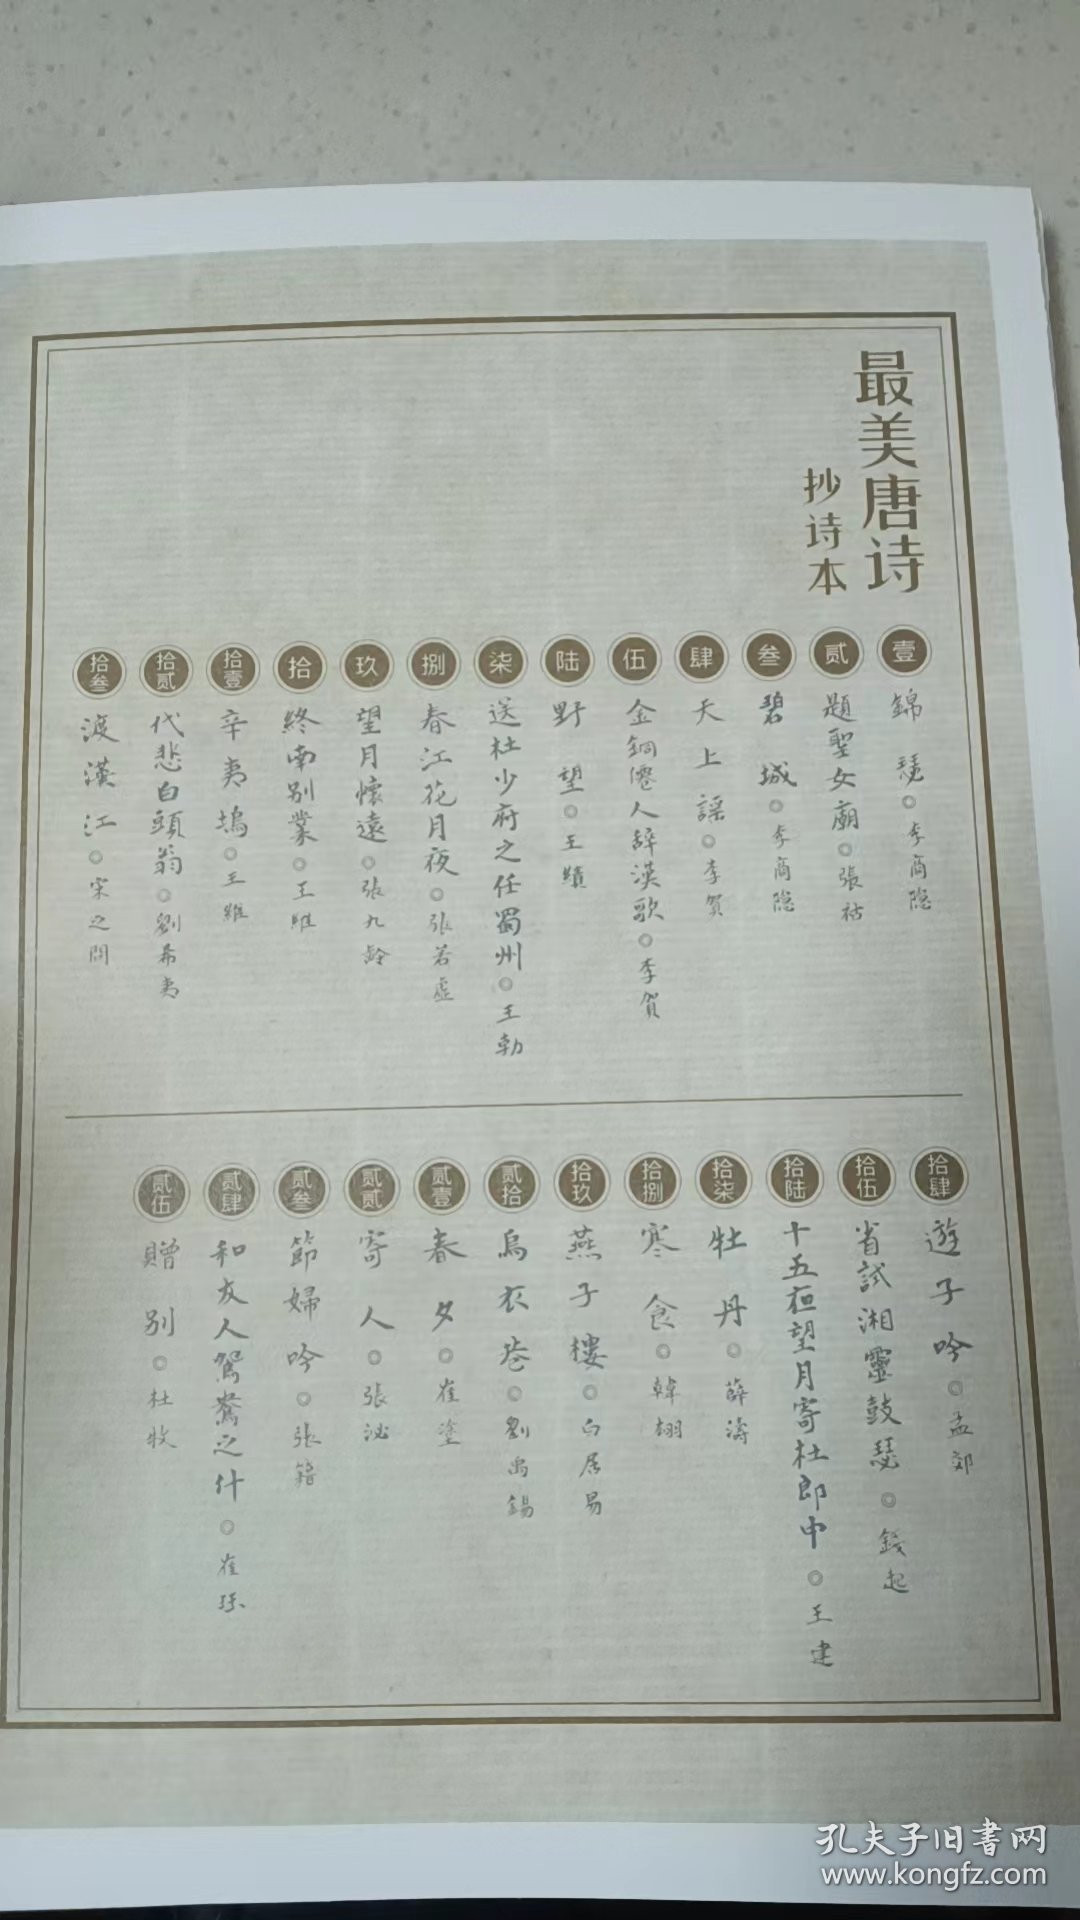 最美唐诗
抄诗本
壹 錦瑟◎李商隐
贰 題聖女廟◎張祜
叁 碧城◎李商隐
肆 天上謡◎李賀
伍 金銅僊人辞漢歌◎李賀
陆 野望◎王績
柒 送杜少府之任蜀州◎王勃
捌 春江花月夜◎張若虚
玖 望月懷遠◎張九龄
拾 終南别業◎王維
拾壹 辛夷塢◎王維
拾贰 代悲白頭翁◎劉希夷
拾叁 渡漢江◎宋之問
拾肆 遊子吟◎孟郊
拾伍 省試湘靈鼓瑟◎錢起
拾陆 十五夜望月寄杜郎中◎王建
拾柒 牡丹◎薛濤
拾捌 寒食◎韓翃
拾玖 燕子樓◎白居易
贰拾 烏衣巷◎劉禹錫
贰壹 春夕◎崔塗
贰贰 寄人◎張泌
贰叁 節婦吟◎張籍
贰肆 和友人鴛鴦之什◎崔珏
贰伍 贈别◎杜牧
孔夫子旧書网
www.kongfz.com